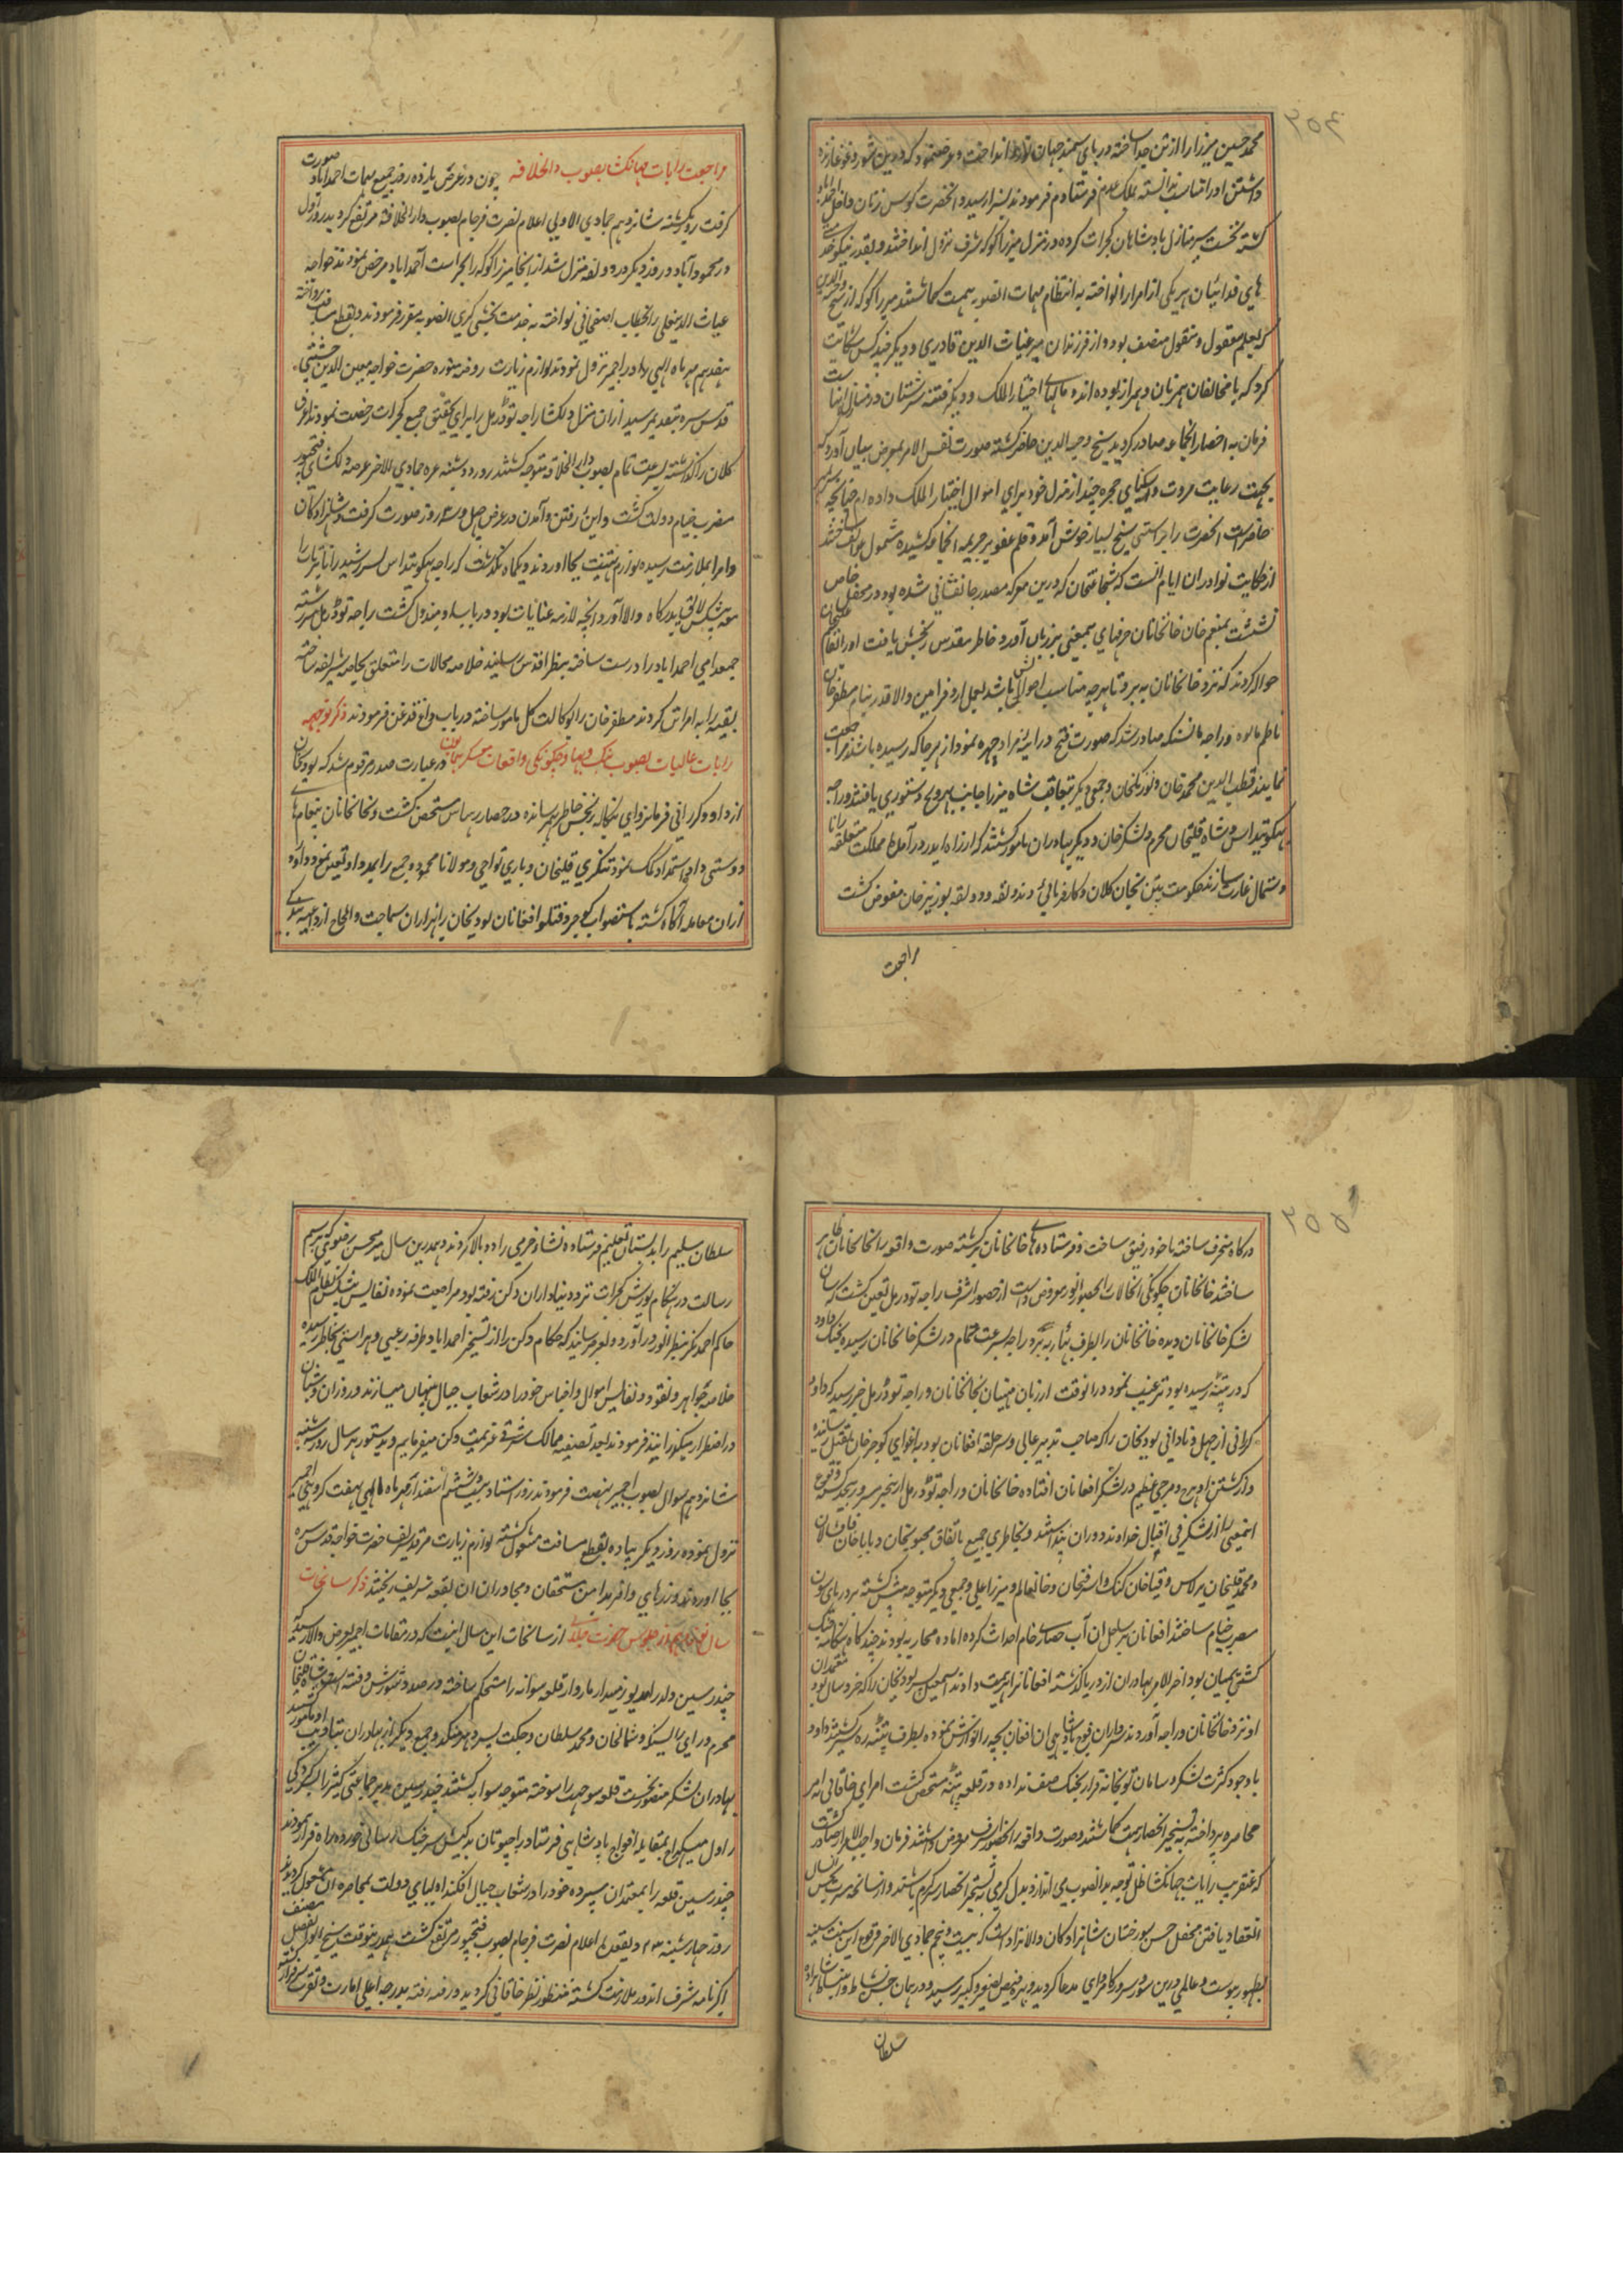 ۲۵۴
محمد حسین میرزا را از تن جدا ساخته در پای سمند جهان نورد انداخت و معروض نمود که درین شور و غوغا زنده
داشتن او را مناسب ندانسته بملک عدم فرستادم فرمودند بسزا رسید و آنحضرت کوس زنان داخل احمداباد
گشته نخست بر منازل بادشاهان گجرات کرده در منزل میرزا کوکه شرف نزول انداختند و بقدر نیکو خدمتی
های فدائیان هر یکی از امرا را نواخته به انتظام مهمات الصوبه همت گماشتند میرزا کوکه از شیخ وجیه الدین
که بعلم معقول و منقول متصف بود و از فرزندان میر غیاث الدین قادری و دیگر چند کس شکایت
کرد که با مخالفان همزبان و همراز بوده اند و مالهای اختیار الملک و دیگر فتنه سرشتان در منازل اینهاست
فرمان به احضار انجماعه صادر گردید شیخ وجیه الدین حاضر گشته صورت نفس الامر بمعرض بیان آورد که
بجهت رعایت مروت و آشنای حجره چند از منزل خود برای اموال اختیار الملک داده ام چنانچه
حاضر است آنحضرت را براستی شیخ بسیار خوش آمد و قلم عفو بر جریمه انجماعه کشیده مشمول عواطف ساختند
از حکایت نوادر ان ایام آنست که شجاعتخان که درین معرکه مصدر جانفشانی شده بود در محفل خاص
نشست بمنعم خان خانخانان حرفهای بیمعنی بر زبان آورد خاطر مقدس رنجش یافت او را بقاسم علیخان
حواله کردند که نزد خانخانان به برد تا هرچه مناسب احوالش باشد بعمل ارد فرامین والا قدر بنام مظفر خان
ناظم مالوه و راجه مانسنکه صادر شد که صورت فتح در آیینه مراد چهره نمود از هر جا که رسیده باشند مراجعت
نمایند قطب الدین محمد خان و نورنگخان و جمعی دیگر بتعاقب شاه میرزا جانب بهروچ دستوری یافتند و راجه
بهکونتداس و شاه قلیخان محرم و لشکر خان و دیگر بهادران مامور گشتند که از راه ایدر در آمده مملکت متعلقه رانا
و شمال غارت سازند حکومت پتن بخان کلان و کارفرمائی دندوقه و دولقه بوزیر خان مفوض گشت
مراجعت
مراجعت رایات جهانکشا بصوب دار الخلافه چون در عرض یازده روز جمیع مهمات احمداباد صورت
گرفت روز یکشنبه شانزدهم جمادی الاولی اعلام نصرت فرجام بصوب دار الخلافه مرتفع گردید روز اول
در محموداباد و روز دیگر در دولقه منزل شد از انجا میرزا کوکه را بحراست احمداباد مرخص نمودند خواجه
غیاث الدین علی را بخطاب اصفخانی نواخته به خدمت بخشی گری الصوبه مقرر فرمودند و بقطع مسافت پرداخته
هفدهم مهر ماه الهی در اجمیر نزول نمودند لوازم زیارت روضه منوره حضرت خواجه معین الدین چشتی
قدس سره بتقدیم رسید ازان منزل دلکشا راجه تودرمل را برای تحقیق جمع گجرات رخصت نمودند اغرق
کلان را گذاشته بسرعت تمام بصوب دار الخلافه متوجه گشتند روز دوشنبه غره جمادی الاخر عرصه دلکشای فتحپور
مضرب خیام دولت گشت و این رفتن و آمدن در عرض چهل و سه روز صورت گرفت و شاهزادگان
و امرا بملازمت رسیده لوازم تهنیت بجا اوردند و یکماه نگذشت که راجه بهکونتداس پسر رشید رانا پرتاب را
معه پیشکش لایق بدرگاه والا آورد انچه لازمه عنایات بود در باب او مبذول گشت راجه تودرمل سررشته
جمعدامی احمداباد را درست ساخته بنظر اقدس رسانید خلاصه محالات را متعلق بخاصه شریفه ساخته
بقیه را به امرا تن کردند مظفر خان را بوکالت کل مامور ساخته در باب داغ قدغن فرمودند ذکر توجه
رایات عالیات بصوب بنگ و بهار و چگونکی واقعات معسکر همایون در عبارت صدر مرقوم شد که لودیخان
از داود کرارانی فرمانروای بنگاله رنجش خاطر بهم رسانده در حصار رهتاس متحصن گشت و بخانخانان پیغام های
دوستی داده استمداد کمک نمود تنکری قلیخان و باری تواچی و مولانا محمود و جمع را بمدد او تعین نمود داود
ازان معامله آگاه گشته باستصواب گوجر و قتلو افغانان لودیخان را بهزاران سماجت و الحاح از داعیه بندگی
۲۵۵
درگاه منحرف ساخته با خود رفیق ساخت و فرستاده های خانخانان برگشته صورت واقعه را بخانخانان ظاهر
ساختند خانخانان چگونگی انحالات را بحضور انور معروض داشت از حضور اشرف راجه تودرمل تعین گشت که سان
لشکر خانخانان دیده خانخانان را بطرف پتنه ببرد راجه بسرعت تمام در لشکر خانخانان رسیده بجنگ داود
که در پتنه رسیده بود ترغیب نمود در انوقت از زبان منهیان بخانخانان و راجه تودرمل خبر رسید که داود
کرارانی از جهل و نادانی لودیخان را که صاحب تدبیر عالی و سر حلقه افغانان بود به اغوای گوجر خان بقتل رسانیده
و از کشتن او هرج و مرج عظیم در لشکر افغانان افتاده خانخانان و راجه تودرمل از ینخبر مسرور گردیدند وقوع
اینمعنی را از لشکر فی اقبال خداوند دوران پنداشتند و بخاطر جمیع باتفاق مجنونخان و بابا خان قاقشالان
و محمد قلیخان برلاس و قیا خان کنک و اشرفخان و خانعالم و میرزا علی و جمعی دیگر متوجه پیش گشته بر دریای سون
مضرب خیام ساختند افغانان بر ساحل ان آب حصار خام احداث کرده اماده محاربه بودند چند گاه هنگامه جنگ
کشتی بمیان بود اخر الامر بهادران از دریا گذشته افغانانرا هزیمت دادند اسمعیل پسر لودیخان را که خرد سال بود معتمدان
او نزد خانخانان و راجه آوردند سرداران فوج بادشاهی ان افغان بچه را نوازش نموده بطرف پتنه ره سپر شدند داود
باوجود کثرت لشکر و سامان توپخانه قرار بجنگ صف نداده در قلعه پتنه متحصن گشت امرای خاقانی به امر
محاصره پرداخته به تسخیر انحصار همت گماشتند و صورت واقعه را بحضور اشرف معروض داشتند فرمان واجب الامر صادر گشت
که عنقریب رایات جهانکشا ظل توجه بدانصوب می اندازد بدل گرمی به تسخیر انحصار سرگرم باشند و از سانحه مسرت بخش انسال
انعقاد یافتن محفل حسن بور ختنان شاهزادگان والانژاد است که بیست و پنجم جمادی الاخر وقوع این سنت سنیه
بظهور پیوست و عالمی درین سور سرور کامروای مدعا گردید و بهره فیض بصغیر و کبیر رسید و در همان جشن نشاط و انبساط شاهزاده
سلطان
سلطان سلیم را بدبستان تعلیم فرستاده نشاء خرمی را دوبالا کردند و بهمدرین سال میر محسن رضوی که برسم
رسالت در هنگام یورش گجرات نزد دنیاداران دکن رفته بود مراجعت نموده نفایس پیشکش نظام الملک
حاکم احمد نگر بنظر انور در آورد و بعرض رسانید که حکام دکن را از تسخیر احمداباد طرفه رعبی و هراسی بخاطر رسیده
خلاصه جواهر و نقود و نفایس اموال و اجناس خود را در شعاب جبال پنهان میسازند و روزان و شبان
در اضطرار میگذرانیدند فرمودند بعد تصفیه ممالک شرقی عزیمت دکن میفرمایم و بدستور هر سال روز سه شنبه
شانزدهم شوال بصوب اجمیر نهضت فرمودند روز استاد بیست ششم اسفندارمذ ماه الهی بهفت کروهی اجمیر
نزول نموده روز دیگر پیاده بقطع مسافت مشغول گشته لوازم زیارت مرقد شریف حضرت خواجه قدس سره
بجا اوردند و زرهای وافر بدامن مستحقان و مجاوران ان بقعه شریف ریختند ذکر سانحات
سال نوزدهم از جلوس حضرت از سانحات این سال اینست که در مقامات اجمیر بعرض والا رسید که
چندر سین ولد رای مالدیو زمیندار ماروار قلعه سوانه را مستحکم ساخته در صدد شورش و فتنه است شاه قلیخان
محرم و رای رایسنگه و شمالخان و محمد سلطان و جگت پسر دهرمنکد و جمع دیگر از بهادران بتادیب او مامور
بهادران لشکر منصور نخست قلعه سوجت را سوخته متوجه سوانه گشتند چندر سین جماعتی کثیر را بسرکردگی
راول میگهراج بمقابله افواج بادشاهی فرستاد راجپوتان بدکیش سر جنگ رسانی خورده براه فرار نمودند
چندر سین قلعه را بمعتمدان سپرده خود را در شعاب جبال افکند اولیای دولت بمحاصره ان مشغول گردیدند
روز چهارشنبه ۲۳ ذیقعده اعلام نصرت فرجام بصوب فتحپور مرتفع گشت همدرینوقت شیخ ابوالفضل مصنف
اکبرنامه شرف اندوز ملازمت گشته منظور نظر خاقانی گردید و رفته رفته بدرجه اعلی امارت و تقرب سرفراز گشته